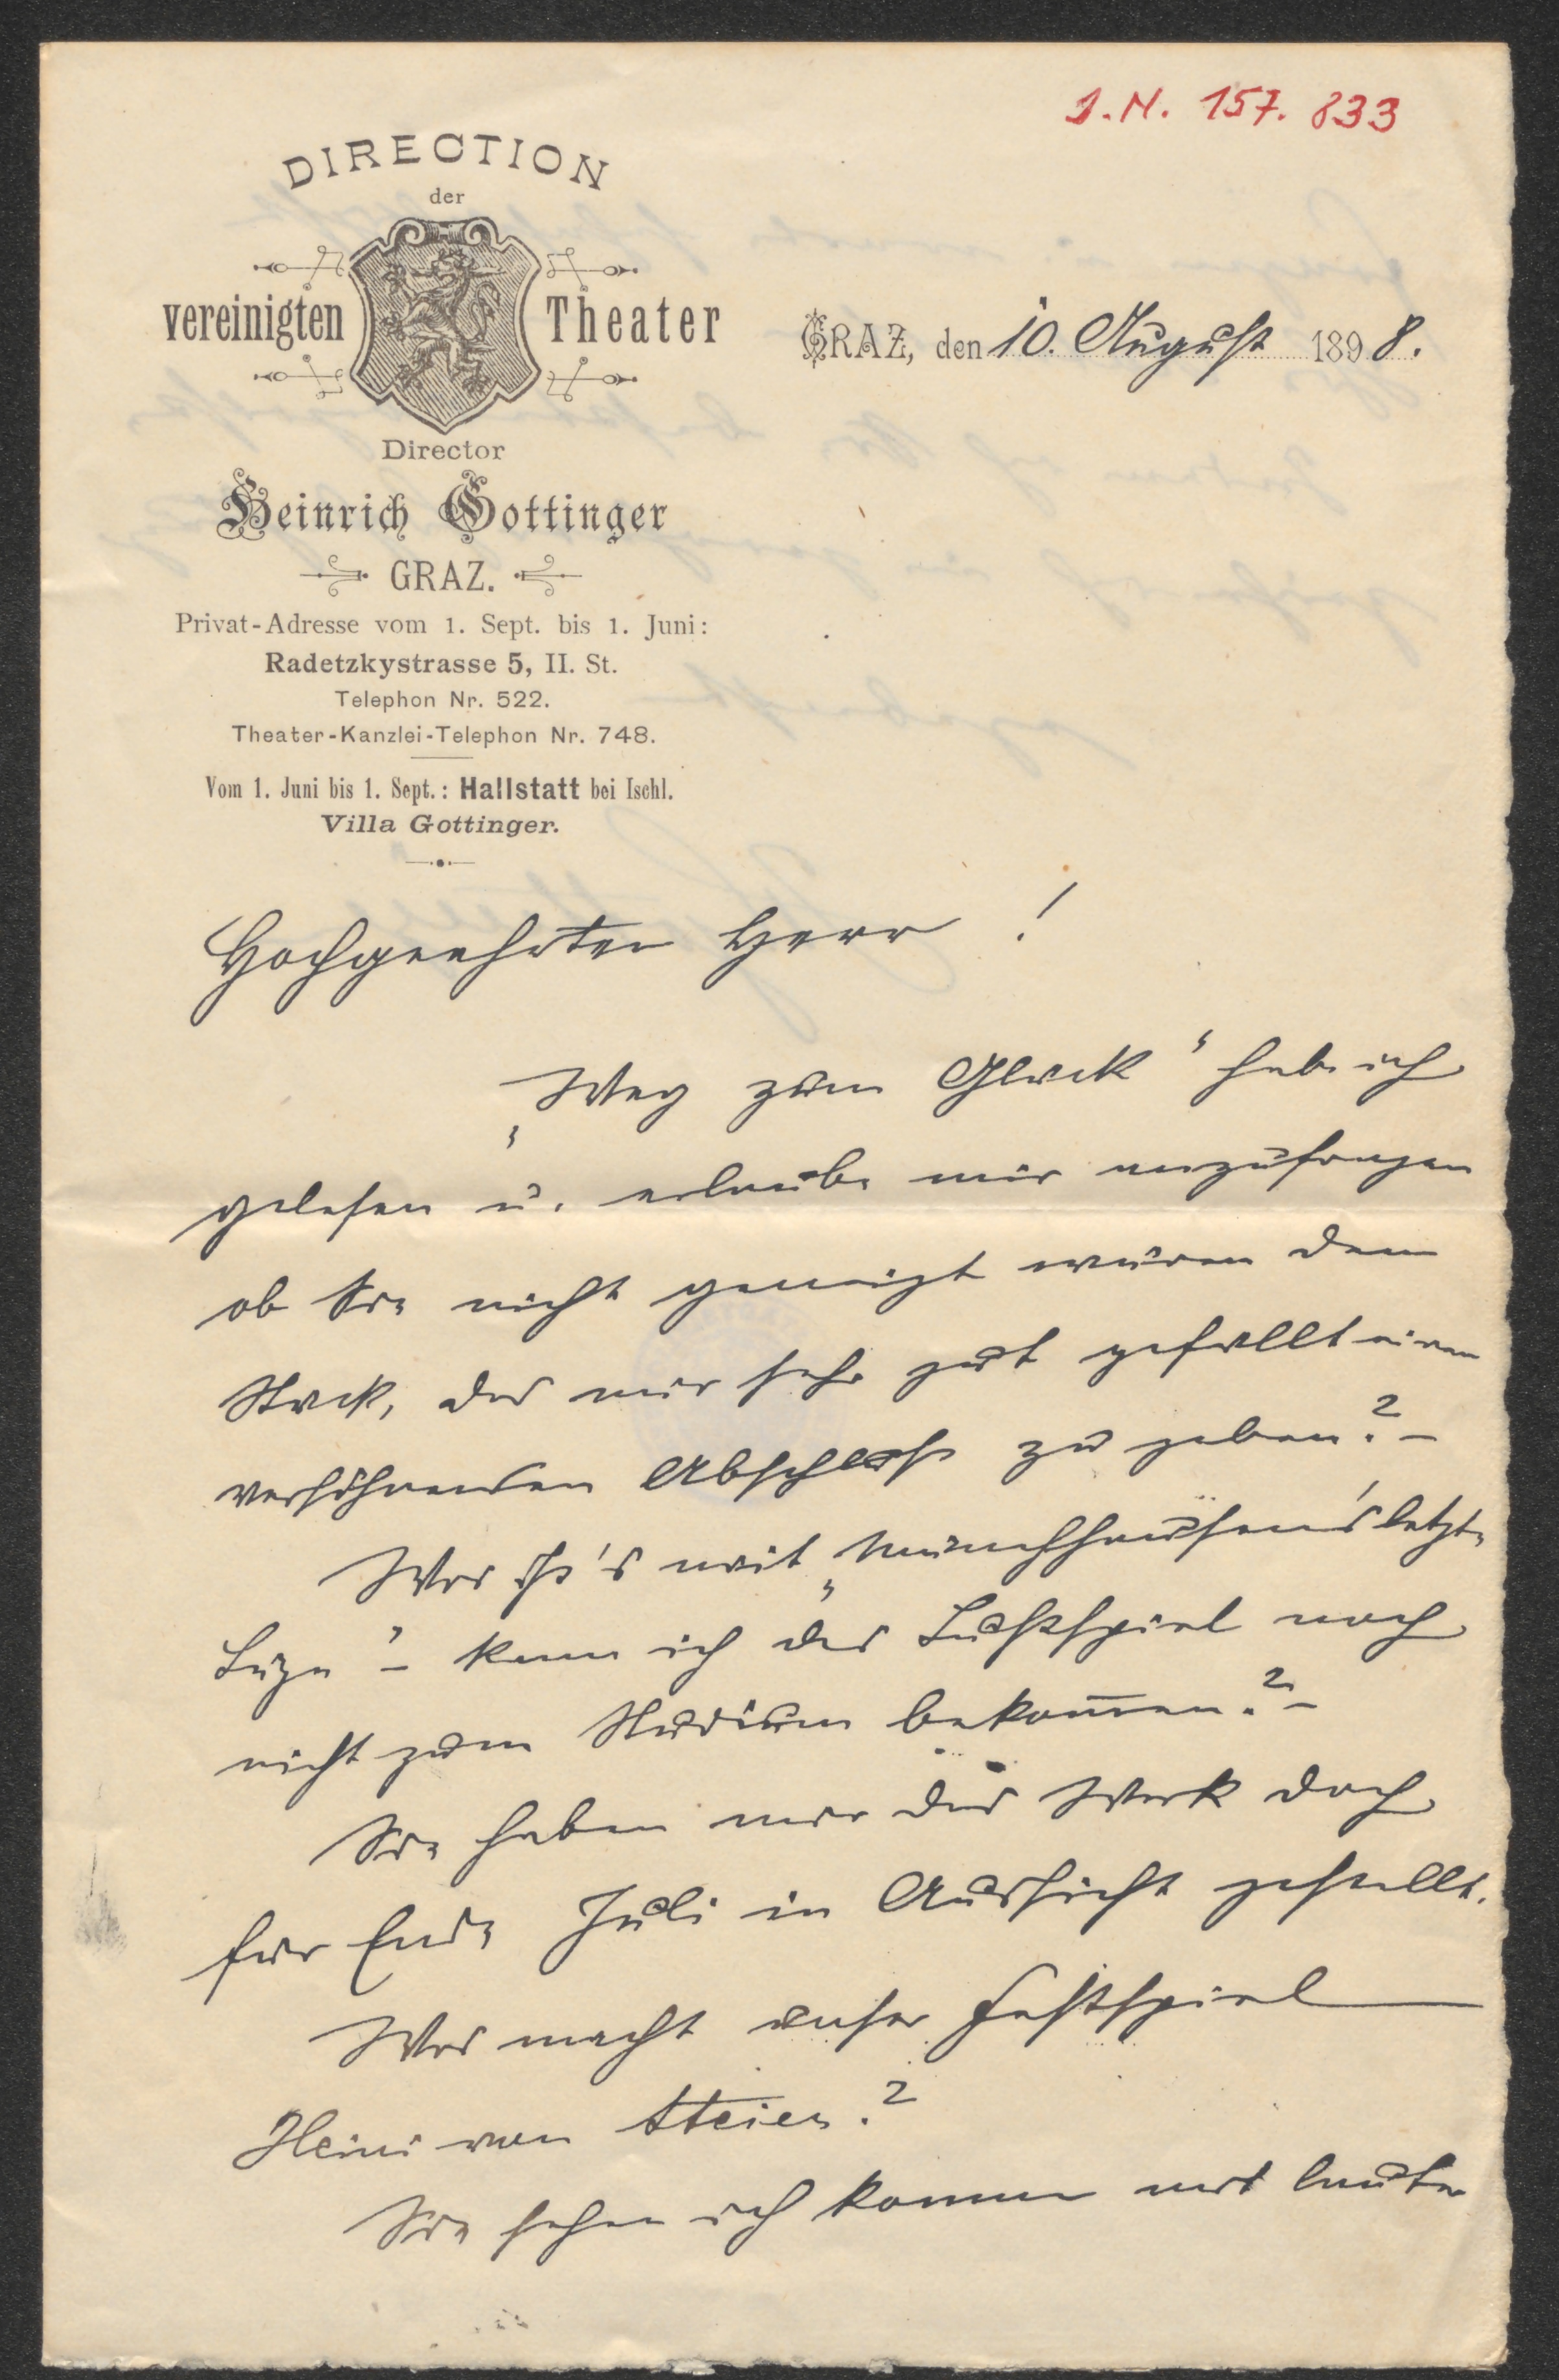 J.N. 157.833
DIRECTION
der
vereinigten Theater
GRAZ, den 10. August 1898.
Director
Heinrich Gottinger
GRAZ.
Privat-Adresse vom 1. Sept. bis 1. Juni:
Radetzkystrasse 5, II. St.
Telephon Nr. 522.
Theater-Kanzlei-Telephon Nr. 748.
Vom 1. Juni bis 1. Sept.: Hallstatt bei Ischl.
Villa Gottinger.
Hochgeehrter Herr!
„Weg zum Glück“ habe ich
gelesen u. erlaube mir anzufragen
ob Sie nicht geneigt wären dem
Stück, das mir sehr gut gefällt einen
versöhnenden Abschluß zu geben? –
Was ist's mit „Münchhausen's letzte
Lüge“ – kann ich das Lustspiel noch
nicht zum Studium bekommen? –
Sie haben mir das Werk doch
für Ende Juli in Aussicht gestellt.
Was macht unser Festspiel
Heini von Steier?
Sie sehen ich komme mit lauter